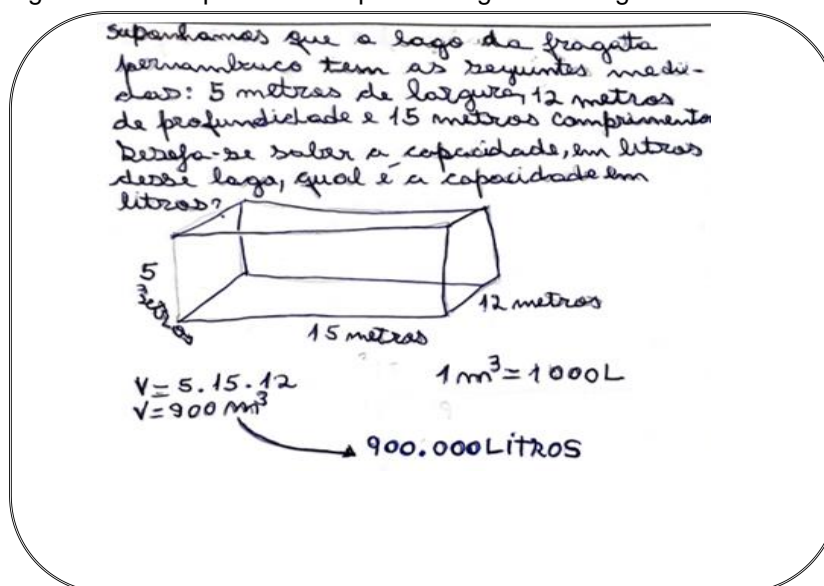 Suponhamos que a lago da fragata
pernambuco tem as seguintes medi-
das: 5 metros de largura, 12 metros
de profundidade e 15 metros comprimento
Deseja-se saber a capacidade, em litros
desse lago, qual é a capacidade em
litros?
5
metros
12 metros
15 metros
V = 5.15.12
1 m³ = 1000L
V = 900 m³
900.000 LITROS